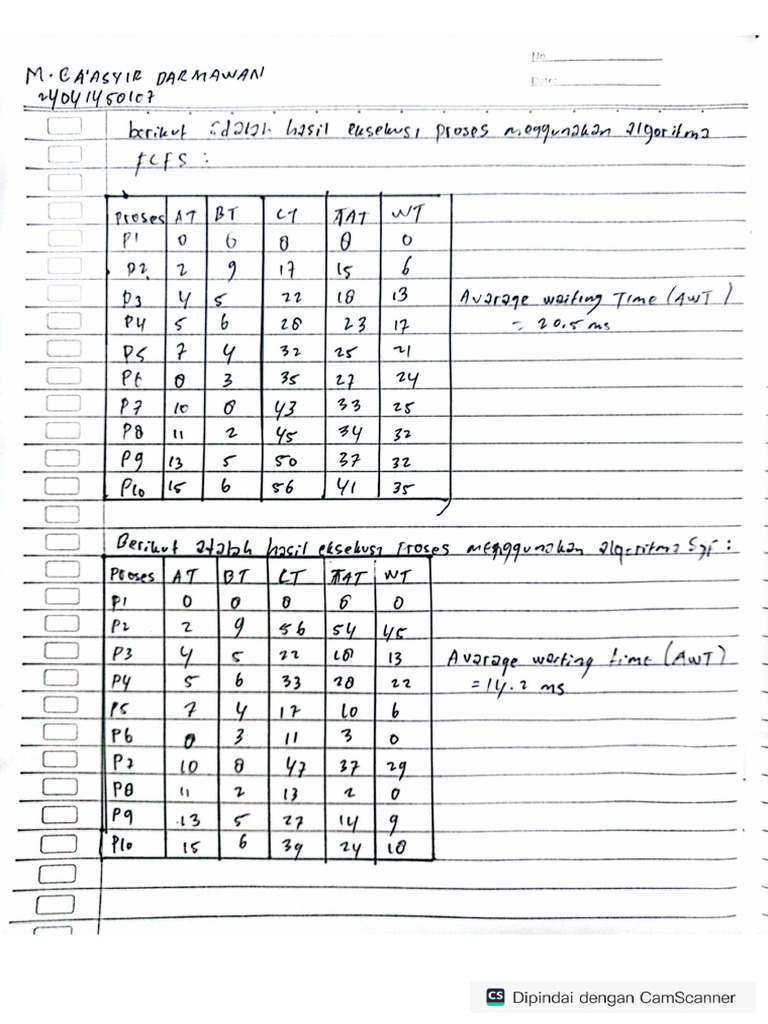 No.
Date:
M. CA'ASYIR DARMAWAN
24041450107
berikut adalah hasil eksekusi proses meggunakan algoritma
FCFS :
Proses AT BT CT TAT WT
P1 0 8 8 8 0
P2 2 9 17 15 6
P3 4 5 22 18 13
P4 5 6 28 23 17
P5 7 4 32 25 21
P6 8 3 35 27 24
P7 10 8 43 33 25
P8 11 2 45 34 32
P9 13 5 50 37 32
P10 15 6 56 41 35
Avarage waiting Time (AWT)
= 20.5 ms
Berikut adalah hasil eksekusi Proses menggunakan algoritma SJF :
Proses AT BT CT TAT WT
P1 0 8 8 8 0
P2 2 9 56 54 45
P3 4 5 22 18 13
P4 5 6 33 28 22
P5 7 4 17 10 6
P6 8 3 11 3 0
P7 10 8 47 37 29
P8 11 2 13 2 0
P9 13 5 27 14 9
P10 15 6 39 24 18
Avarage waiting time (AWT)
= 14.2 ms
CS Dipindai dengan CamScanner